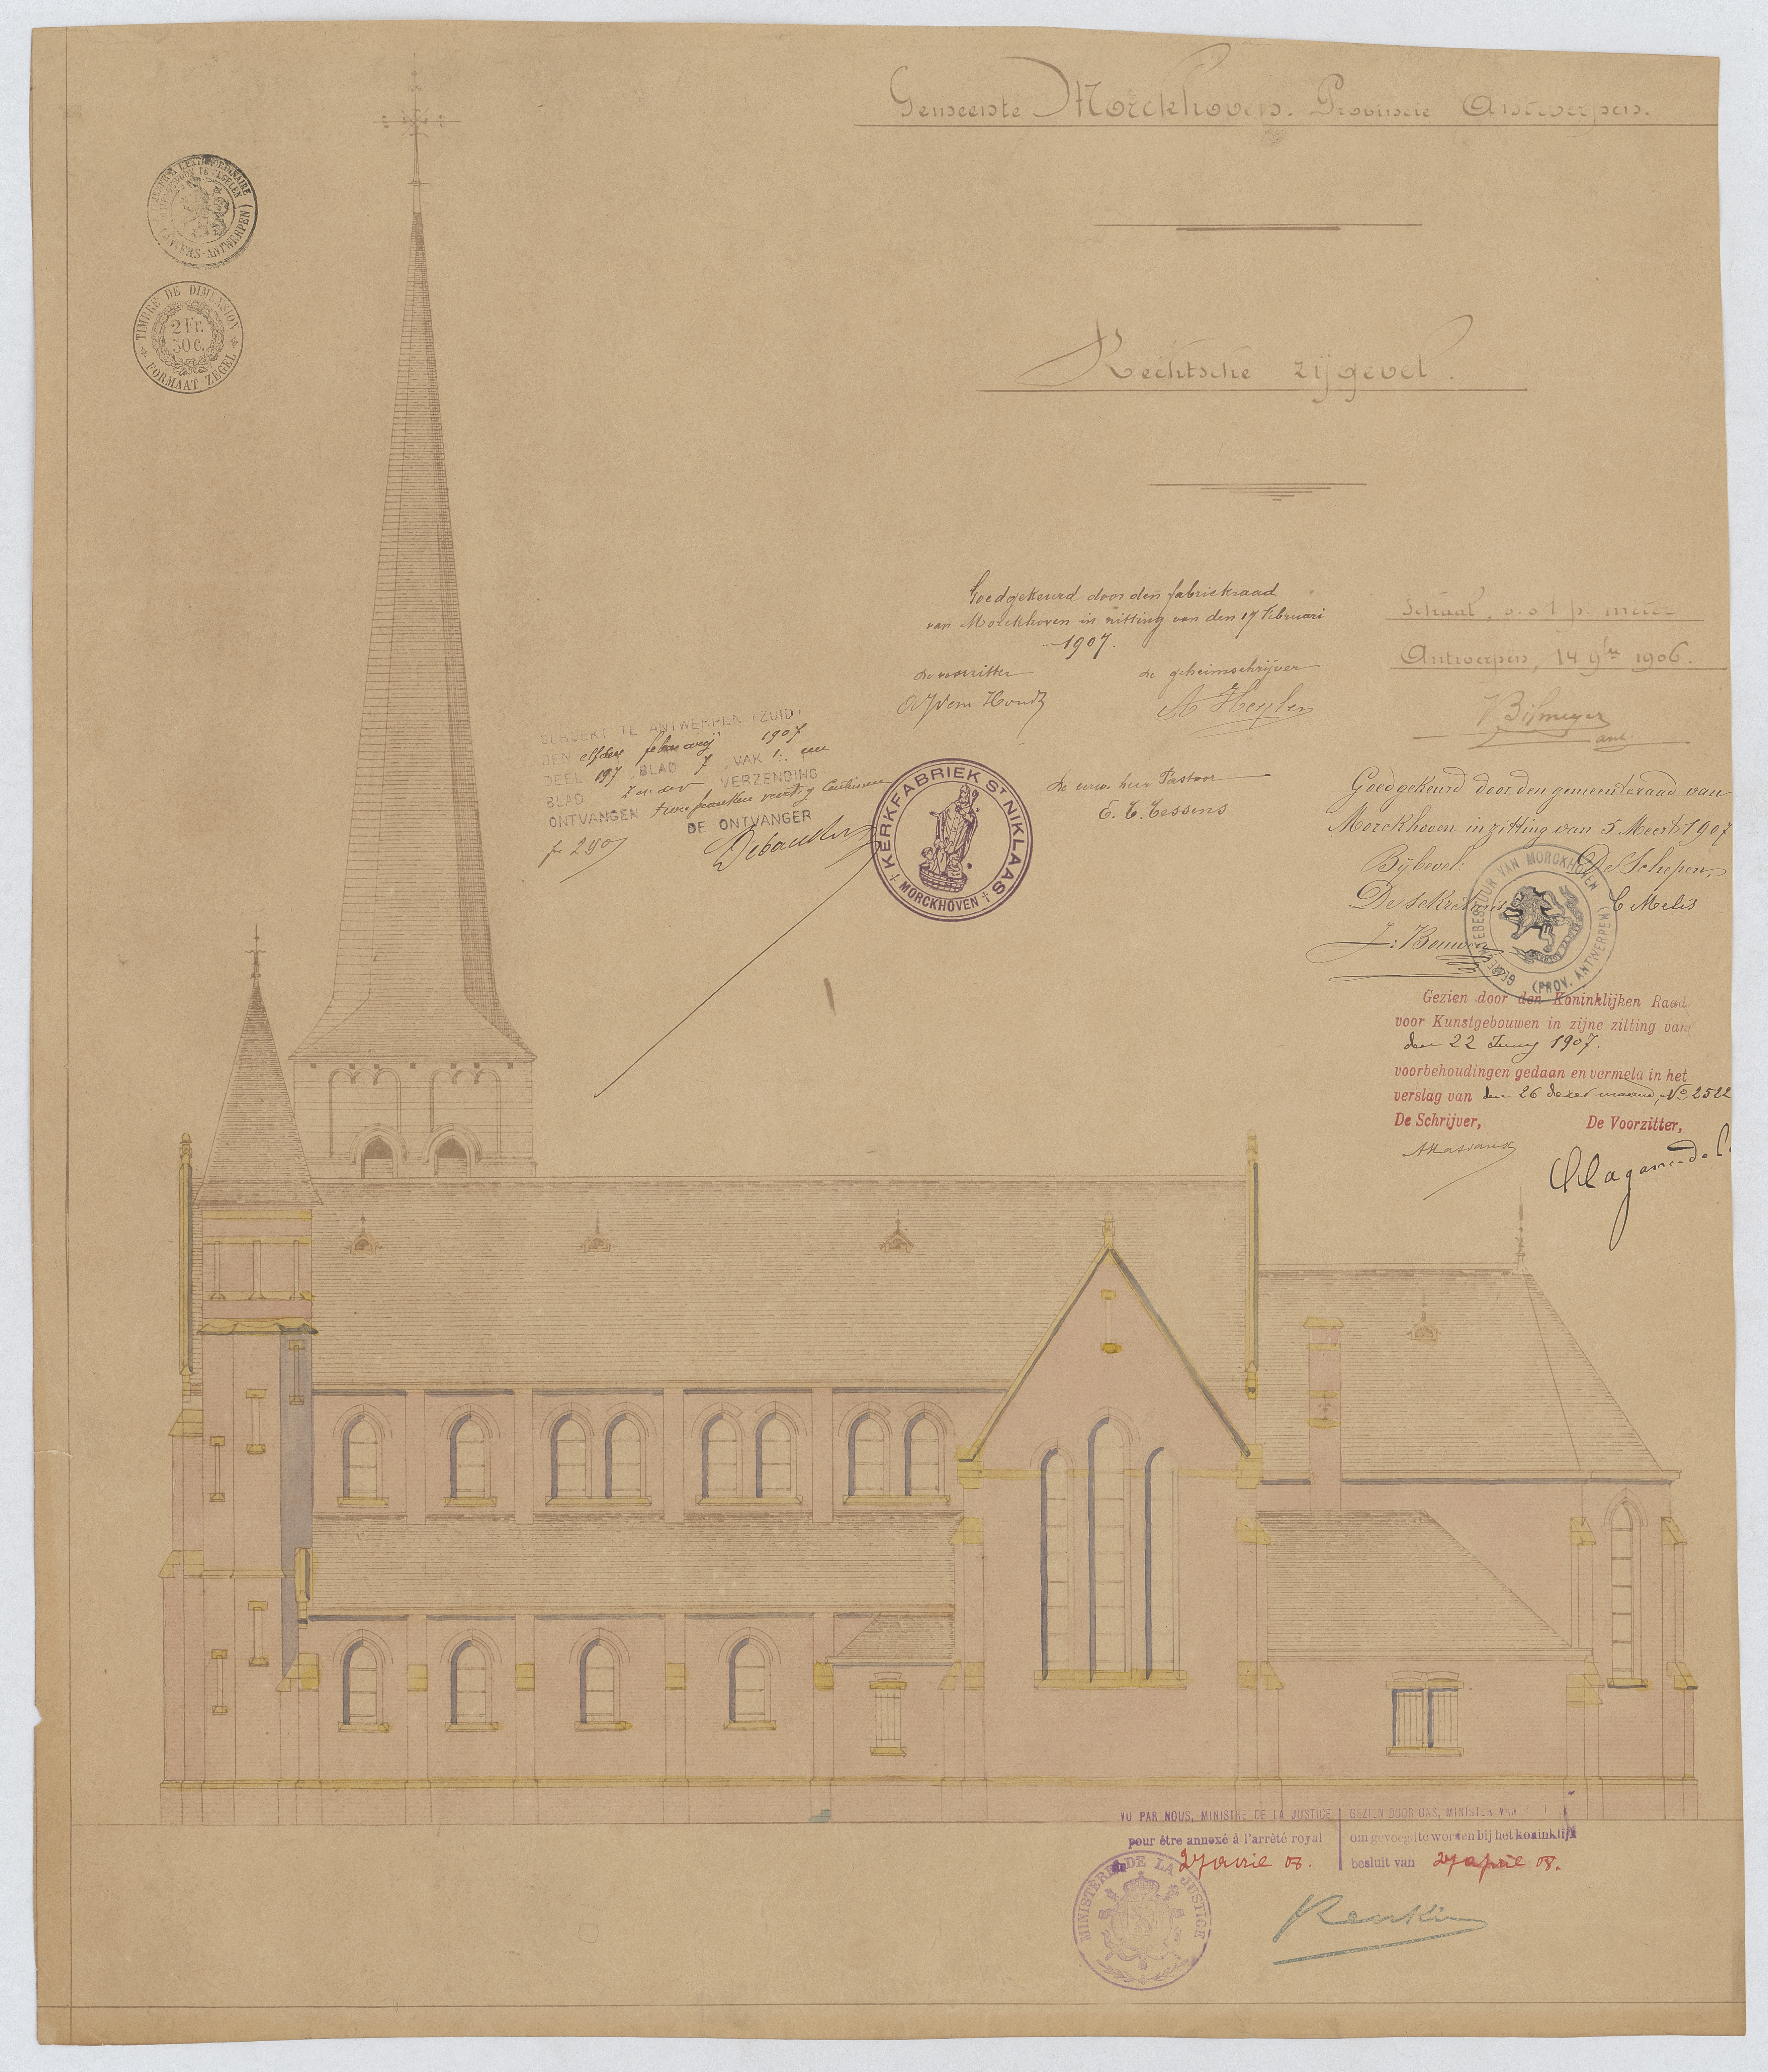 Gemeente Morckhoven. Provincie Antwerpen.
TIMBRE DE DIMENSION
2 Fr.
50 c.
FORMAAT ZEGEL
Rechtsche zijgevel.
Schaal, 0.01 p. meter
Antwerpen, 14 9bre 1906.
Goedgekeurd door den fabriekraad
van Morckhoven in zitting van den 17 Februari
1907.
De voorzitter
De geheimschrijver
A Heylen
De eerw. heer Pastoor
KERKFABRIEK ST NIKLAAS
MORCKHOVEN
GEBOEKT TE ANTWERPEN (ZUID)
DEN elfden februarij 1907
DEEL 197, BLAD 7, VAK 1: een
BLAD zonder VERZENDING
ONTVANGEN twee franken veertig Centimen
DE ONTVANGER
Goedgekeurd door den gemeenteraad van
Morckhoven in zitting van 5 Meert 1907
Bij bevel: De Schepen,
De sekretaris C Melis
GEMEENTEBESTUUR VAN MORCKHOVEN
(PROV. ANTWERPEN)
Gezien door den Koninklijken Raad
voor Kunstgebouwen in zijne zitting van
den 22 Juny 1907.
voorbehoudingen gedaan en vermeld in het
verslag van den 26 dezer maand, No 2522
De Schrijver, De Voorzitter,
VU PAR NOUS, MINISTRE DE LA JUSTICE
pour être annexé à l'arrêté royal
27 avril 08.
GEZIEN DOOR ONS, MINISTER VAN
om gevoegd te worden bij het koninklijk
besluit van 27 april 08.
MINISTÈRE DE LA JUSTICE
Renkin